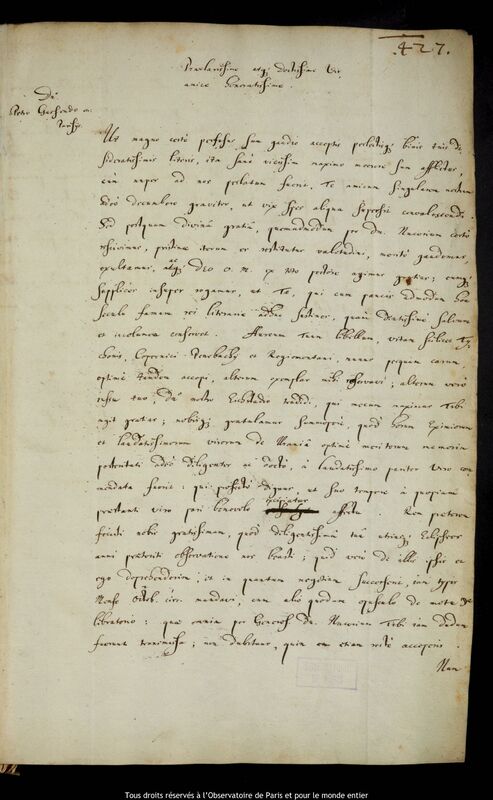 .427.
Praeclarissime atq; doctissime Vir,
amice honoratissime.
Dn̄
Petro Gassendo
Parisijs
Ut magno certè perfusus sum gaudio acceptis perlectisq; binis tuis de-
sideratissimis literis, ita sanè vicissim maximo moerore sum afflictus,
cùm nuper ad nos perlatum fuerit, Te amicum singularem nostrum
adeò decumbere graviter, ut vix spes aliqua superesset convalescendi.
Sed postquam divinâ gratiâ, quemadmodum per dn. certò
rescivimus, pristinae iterum es restitutus valetudini, meritò gaudemus,
exultamus, atq; DEO O. M. ex toto pectore agimus gratias; eumq;
supplices insuper rogamus, ut Te, qui cum paucis admodum hoc
seculo famam rei literariae adhuc sustines, quàm diutissimè salvum
et incolumem conservet. Aureum Tuum libellum, vitam scilicet Ty-
chonis, Copernici, Peurbachij et Regiomontani, munus perquam carum,
optimè tandem accepi, alterum exemplar mihi reservavi; alterum verò
iussu tuo, Dn̄ nostro Eichstadio tradidi, qui mecum maximas Tibi
agit gratias; nobisq; gratulamur summopere, quòd horum eximiorum
et laudatissimorum virorum de Uraniâ optimè meritorum memoria
posteritati adeò diligenter ac doctè, à laudatissimo pariter Viro com-
mendata fuerit: qui profectò dignus, ut suo tempore à quopiam
praestanti viro pari benevolo excipiatur affectu. Rem praeterea
fecisti nobis gratissimam, quòd diligentissimâ tuâ utriusq; Eclipseos
anni praeteriti observatione nos beasti; quid verò de illis ipse et
ego deprehenderim, et in quantum negotium successerit, iam typis
Mense Octob. circ. mandavi, cum alio quodam opusculo de motu
libratorio: quae omnia per Generos. Dn. Tibi iam dudum
fuerunt transmissa; non dubitans, quin ea etiam rectè acceperis.
Nam
Tous droits réservés à l'Observatoire de Paris et pour le monde entier